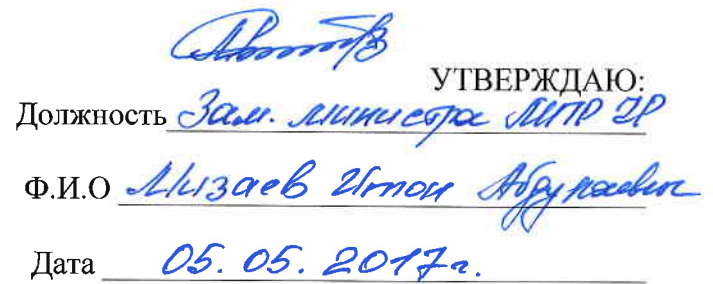 УТВЕРЖДАЮ:
Должность Зам. министра МПР ЧР
Ф.И.О Мизаев
Дата 05. 05. 2017г.